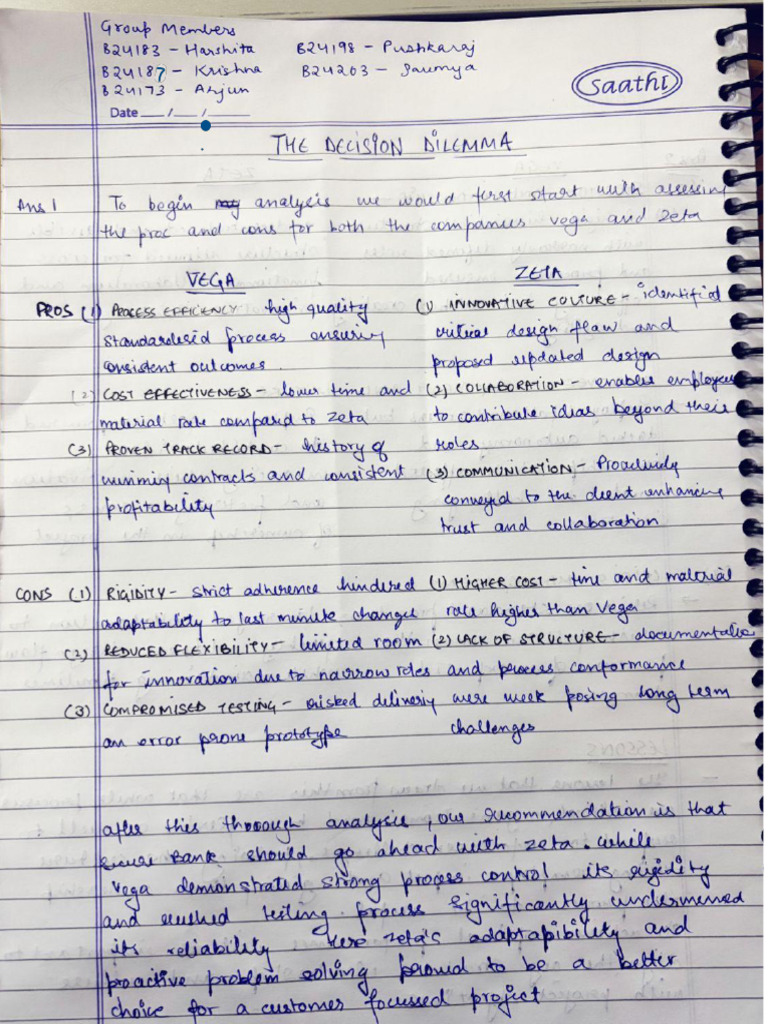 Group Members
B24183 - Harshita B24198 - Pushkaraj
B24187 - Krishna B24203 - Saumya
B24173 - Arjun
saathi
Date __/__/__
THE DECISION DILEMMA
Ans 1 To begin analysis we would first start with assessing
the pros and cons for both the companies vega and zeta
VEGA ZETA
PROS (1) PROCESS EFFICIENCY - high quality
standardised process ensuring
consistent outcomes.
(2) COST EFFECTIVENESS - lower time and
material rate compared to zeta
(3) PROVEN TRACK RECORD - history of
winning contracts and consistent
profitability
(1) INNOVATIVE CULTURE - identified
critical design flaw and
proposed updated design
(2) COLLABORATION - enables employees
to contribute ideas beyond their
roles
(3) COMMUNICATION - Proactively
conveyed to the client enhancing
trust and collaboration
CONS (1) RIGIDITY - strict adherence hindered
adaptability to last minute changes
(2) REDUCED FLEXIBILITY - limited room
for innovation due to narrow roles
(3) COMPROMISED TESTING - risked delivering
an error prone prototype
(1) HIGHER COST - time and material
rate higher than Vega
(2) LACK OF STRUCTURE - documentation
and process conformance
were weak posing long term
challenges
after this thorough analysis, our recommendation is that
Bank should go ahead with zeta. while
Vega demonstrated strong process control its rigidity
and rushed testing process significantly undermined
its reliability Here zeta's adaptapibility and
proactive problem solving proved to be a better
choice for a customer focussed project